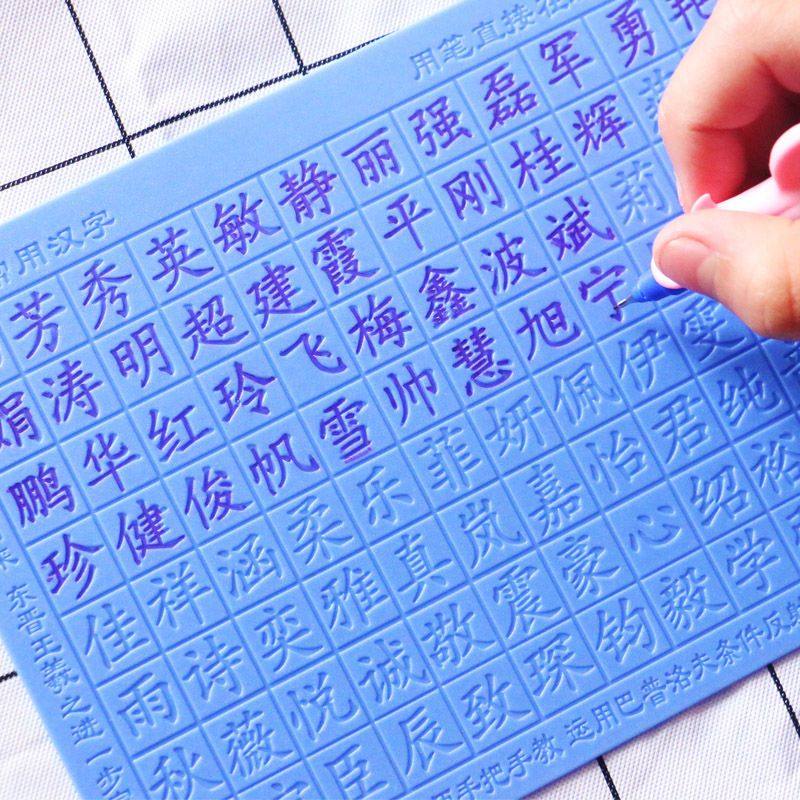 用汉字
用笔直接在
芳秀英敏静丽强磊军勇艳
娟涛明超建霞平刚桂辉
鹏华红玲飞梅鑫波斌莉
珍健俊帆雪帅慧旭宁
佳祥涵柔乐菲妍佩伊雯
雨诗奕雅真岚嘉怡君纯
秋薇悦诚敬震豪心绍裕
臣辰致琛钧毅学
东晋王羲之进一步
手把手教 运用巴普洛夫条件反射